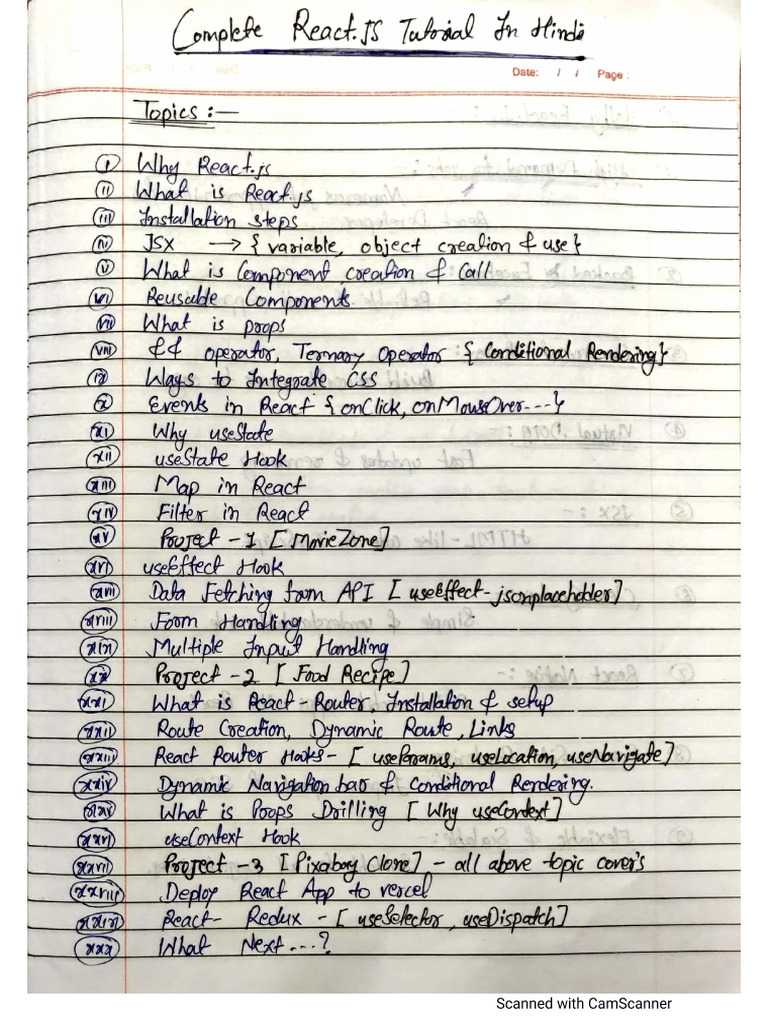 Complete React.JS Tutorial In Hindi
Date: / / Page:
Topics :—
i Why React.js
ii What is React.js
iii Installation steps
iv JSX → { variable, object creation & use}
v What is Component creation & Call
vi Reusable Components.
vii What is props
viii && operator, Ternary Operator { Conditional Rendering}
ix Ways to Integrate CSS
x Events in React { onClick, onMouseOver...}
xi Why useState
xii useState Hook
xiii Map in React
xiv Filter in React
xv Project -1 [ MovieZone]
xvi useEffect Hook
xvii Data Fetching from API [ useEffect-jsonplaceholder]
xviii Form Handling
xix Multiple Input Handling
xx Project -2 [ Food Recipe]
xxi What is React-Router Installation & setup
xxii Route Creation, Dynamic Route, Links
xxiii React Router Hooks- [ useParams, useLocation, useNavigate]
xxiv Dynamic Navigation bar & Conditional Rendering.
xxv What is Props Drilling [ Why useContext]
xxvi useContext Hook
xxvii Project -3 [ Pixabay Clone] - all above topic cover's
xxviii Deploy React App to vercel
xxix React- Redux - [ useSelector, useDispatch]
xxx What Next...?
Scanned with CamScanner